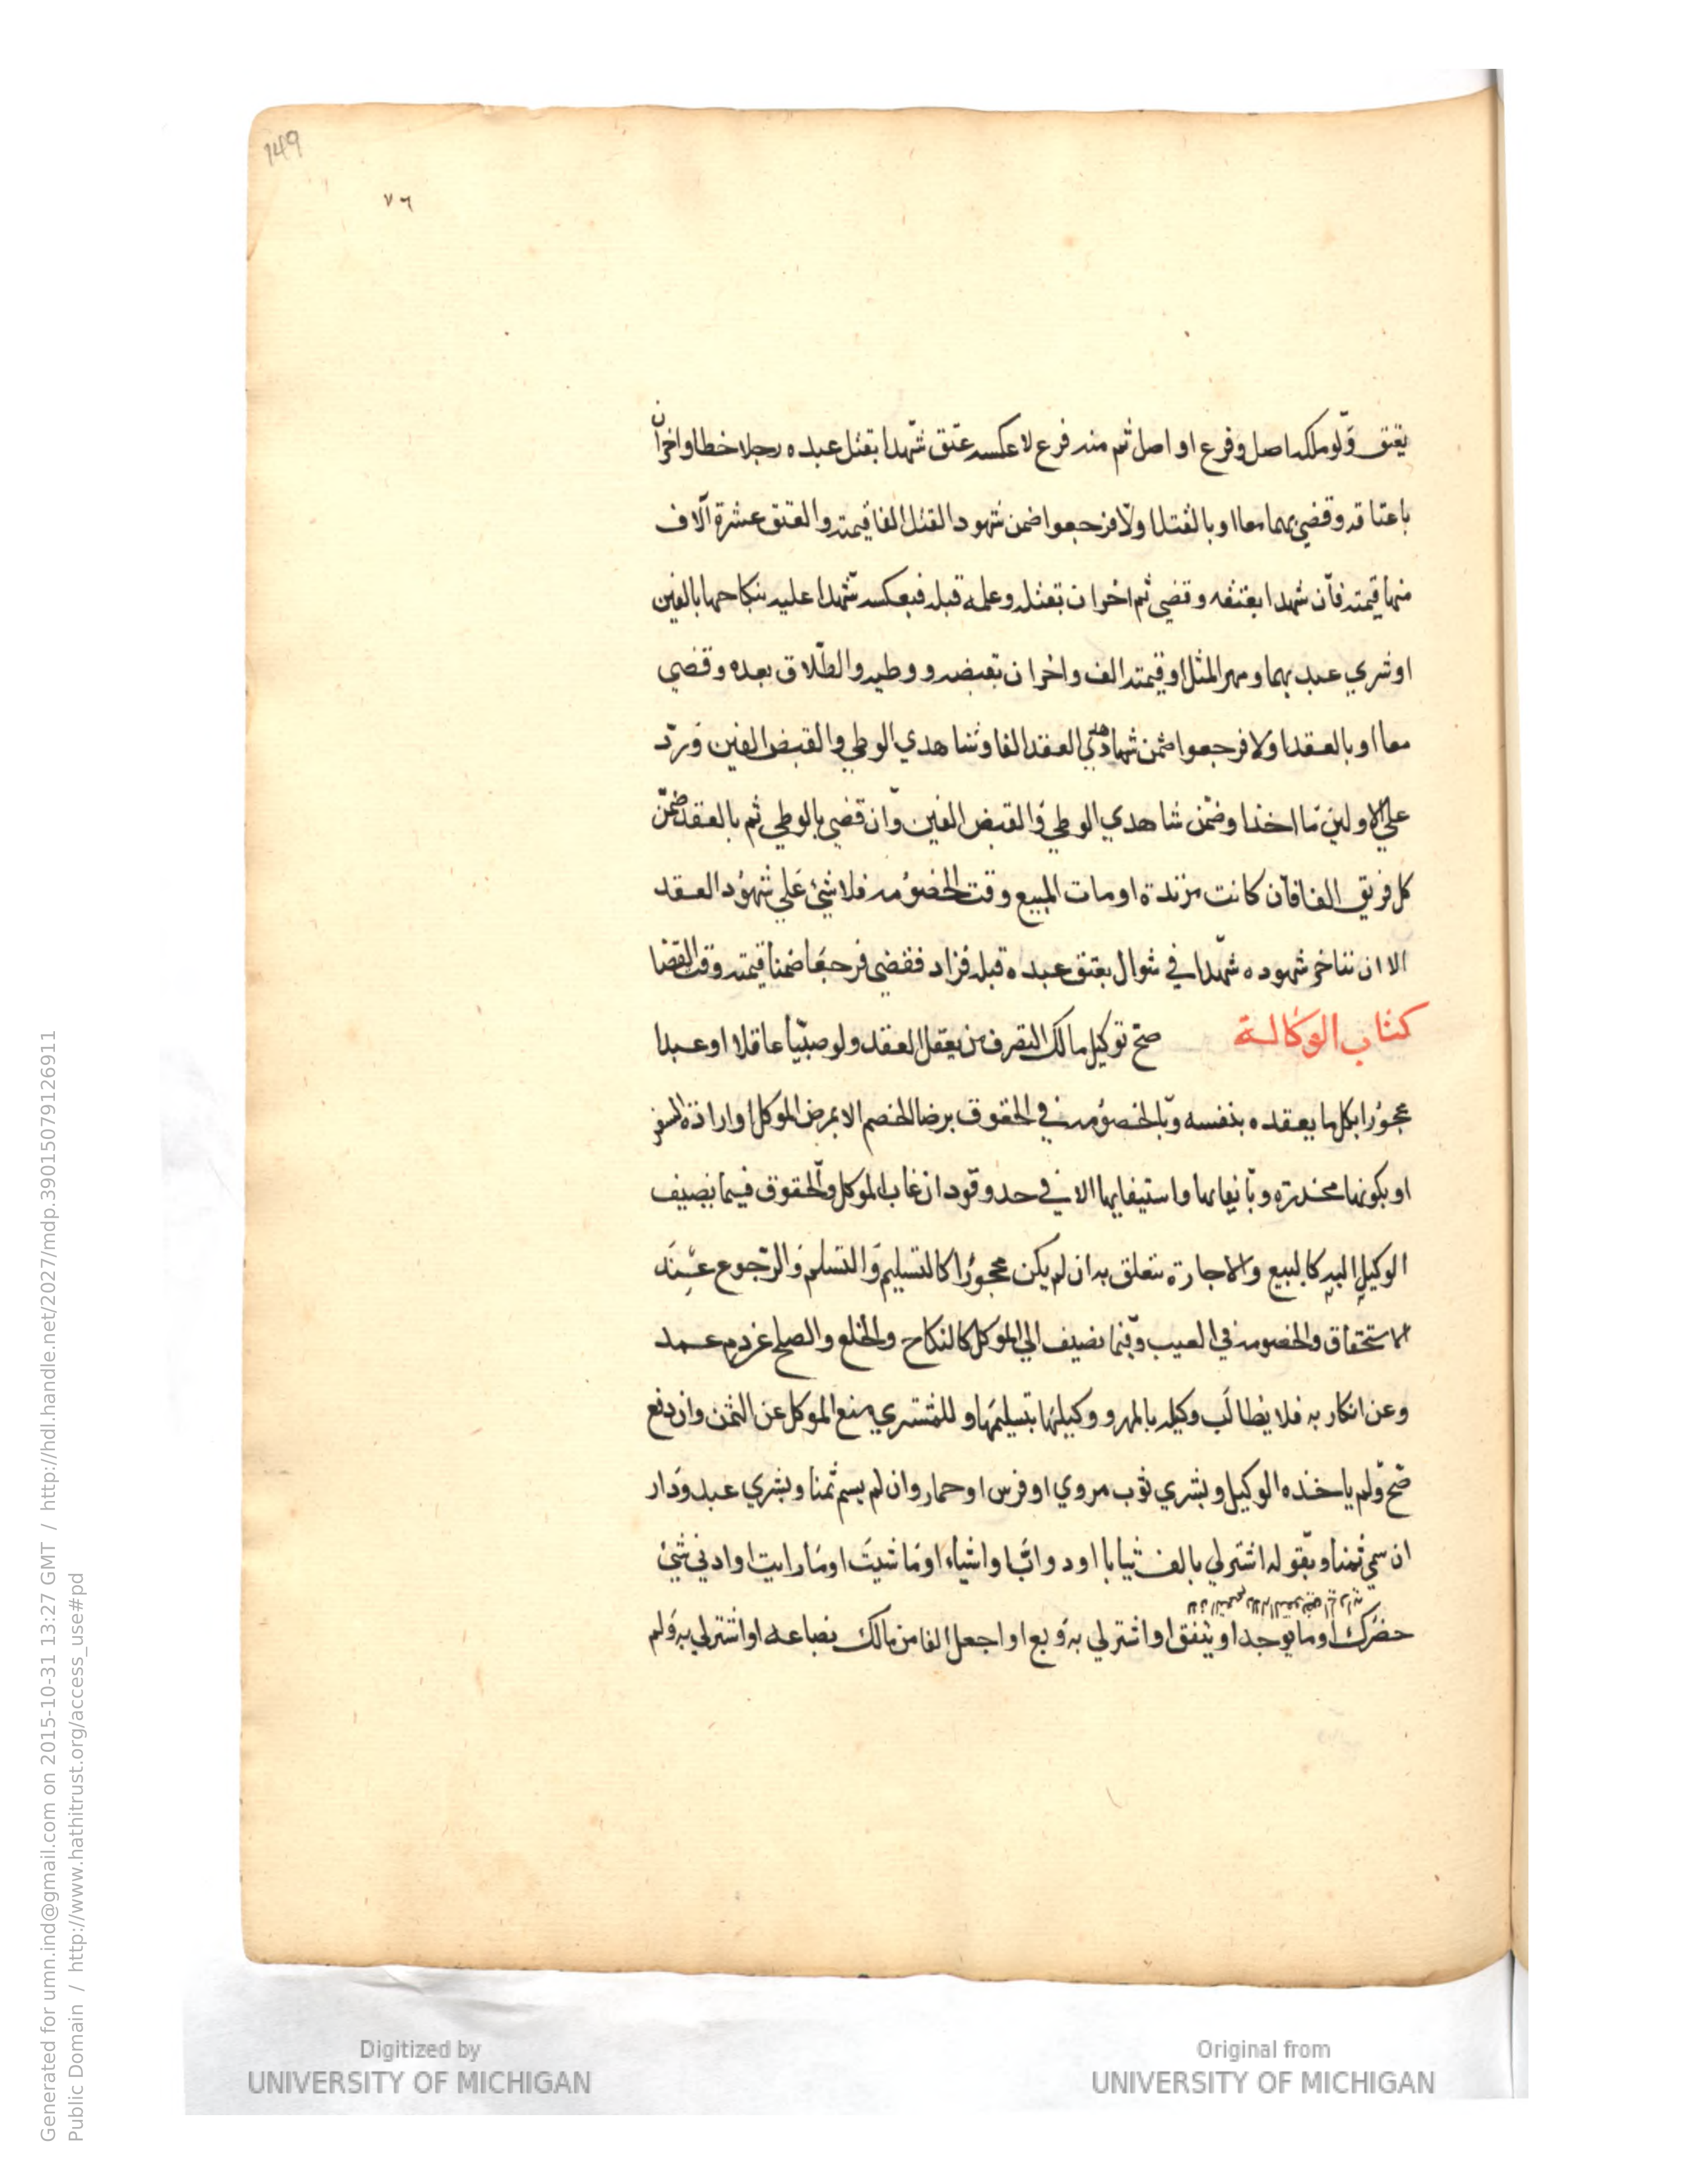 149
٧٦
يعتق ولو ملك اصل وفرع او اصل ثم منه فرع لا عكسه عتق شهدا بقتل عبده رجلا خطا واخران
باعتاقه وقضي بهما معا او بالقتل اولا فرجعوا ضمن شهود القتل الفا قيمته والعتق عشرة آلاف
منها قيمته فان شهدا بعتقه وقضي ثم اخران بقتله وعلمه قبله فبعكسه شهدا عليه بنكاحها بالفين
او شري عبد بهما ومهر المثل او قيمته الف واخران بقبضه ووطيه والطلاق بعده وقضي
معا او بالعقد اولا فرجعوا ضمن شاهدي العقد الفا وشاهدي الوطي والقبض الفين ورد
علي الاولين ما اخذا وضمن شاهدي الوطي والقبض الفين وان قضي بالوطي ثم بالعقد ضمن
كل فريق الفا فان كانت مرتدة او مات المبيع وقت الخصومه فلا شئ علي شهود العقد
الا ان تتاخر شهوده شهدا في شوال بعتق عبده قبله فزاد فقضي فرجعا ضمنا قيمته وقت القضا
كتاب الوكالة صح توكيل مالك التصرف من يعقل العقد ولو صبيا عاقلا او عبدا
محجورا بكل ما يعقده بنفسه وبالخصومه في الحقوق برضا الخصم الا بمرض الموكل او ارادة السفر
او بكونها مخدرة وبايفايها واستيفايها الا في حد وقود ان غاب الموكل والحقوق فيما يضيف
الوكيل اليه كالبيع والاجارة تتعلق به ان لم يكن محجورا كالتسليم والتسلم والرجوع عند
الاستحقاق والخصومه في العيب وفيما يضيف الي الموكل كالنكاح والخلع والصلح عن دم عمد
وعن انكار به فلا يطالب وكيله بالمهر ووكيلها بتسليمها وللمشتري منع الموكل عن الثمن وان دفع
صح ولم ياخذه الوكيل وبشري ثوب مروي او فرس او حمار وان لم يسم ثمنا وبشري عبد ودار
ان سمي ثمنا وبقوله اشترلي بالف ثيابا او دوابا واشياء او ما شيت او ما رايت او ادني شئ
حضرك او ما يوجد او يتفق او اشترلي به وبع او اجعل الفا من مالك بضاعه او اشترلي به ولم
Digitized by
UNIVERSITY OF MICHIGAN
Original from
UNIVERSITY OF MICHIGAN
Generated for umn.ind@gmail.com on 2015-10-31 13:27 GMT / http://hdl.handle.net/2027/mdp.39015079126911
Public Domain / http://www.hathitrust.org/access_use#pd